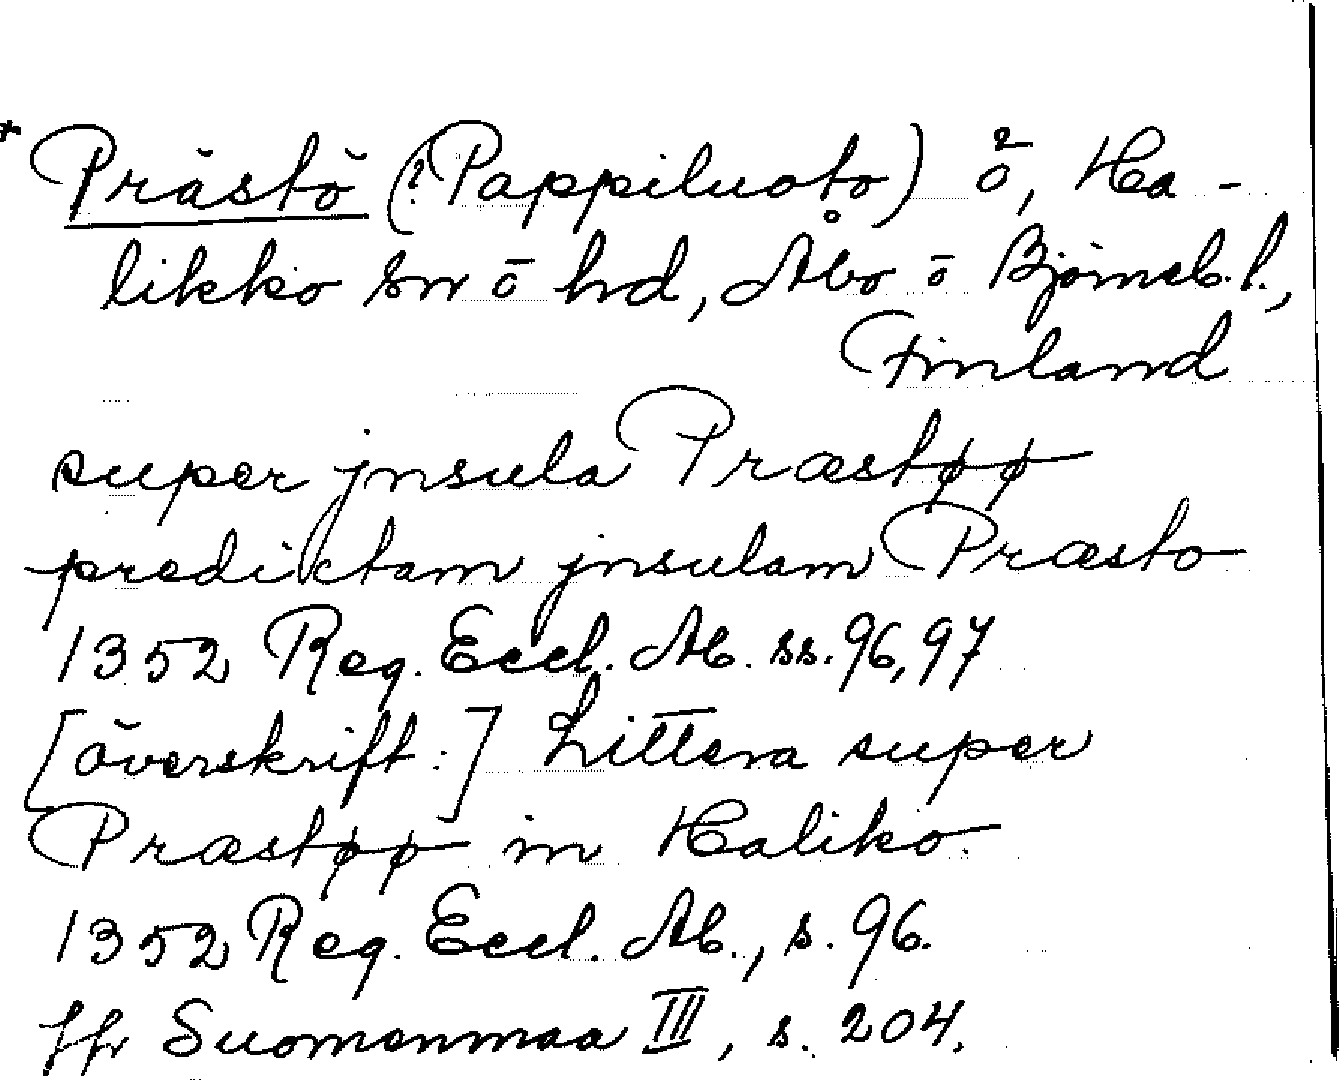 * Prästö (? Pappiluoto) ö, Ha-
likko sn o hd, Åbo o Björneb. l.,
Finland
super jnsula Præstøø
predictam jnsulam Præsto
1352 Reg. Eccl. Ab. ss. 96, 97
[överskrift:] Littera super
Præstøø in Haliko.
1352 Reg. Eccl. Ab., s. 96.
Jfr Suomenmaa III, s. 204.